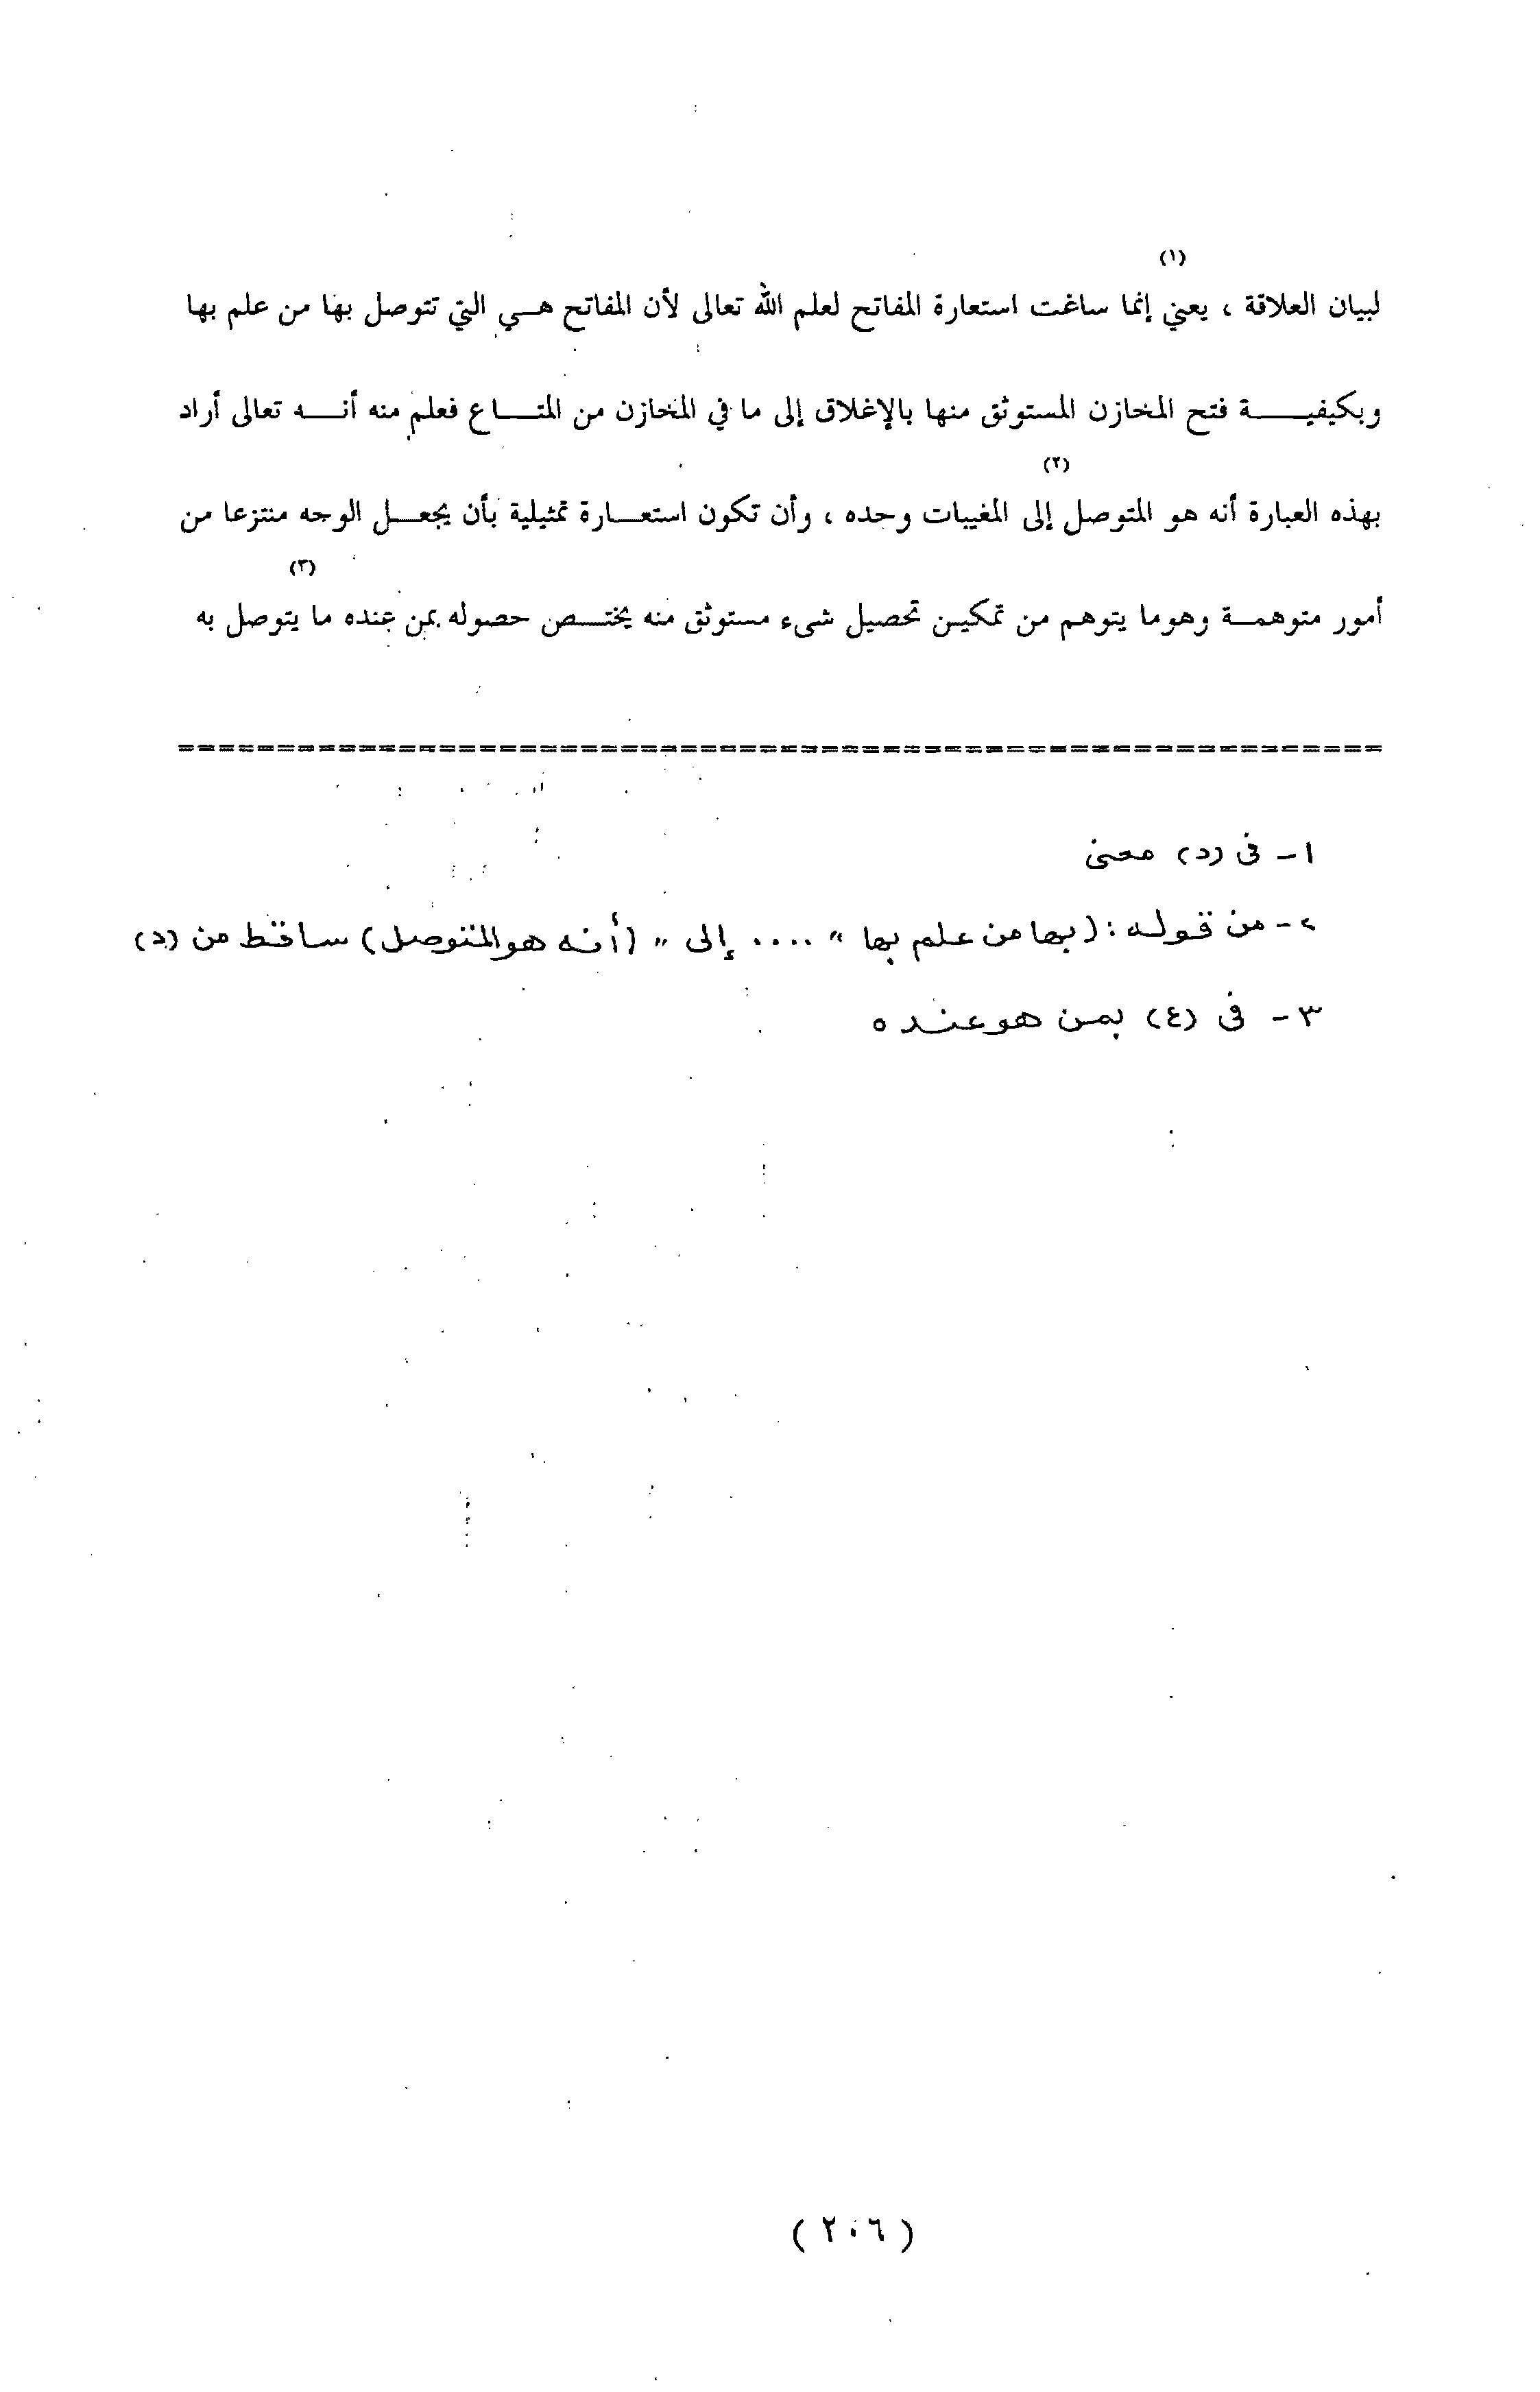 (١)
لبيان العلاقة ، يعني إنما ساغت استعارة المفاتح لعلم الله تعالى لأن المفاتح هـــي التي تتوصل بها من علم بها
وبكيفيـــــة فتح المخازن المستوثق منها بالإغلاق إلى ما في المخازن من المتـــاع فعلم منه أنـــه تعالى أراد
(٢)
بهذه العبارة أنه هو المتوصل إلى المغيبات وحده ، وأن تكون استعـــارة تمثيلية بأن يجعـــل الوجه منتزعا من
(٣)
أمور متوهمـــة وهوما يتوهم من تمكين تحصيل شىء مستوثق منه يختـــص حصوله بمن عنده ما يتوصل به
==========================================================
١- فى (د) معنى
٢- من قوله : (بها من علم بها " .... إلى " (أنه هو المتوصل) ساقط من (د)
٣- فى (ع) بمن هو عنده
( ٢٠٦ )